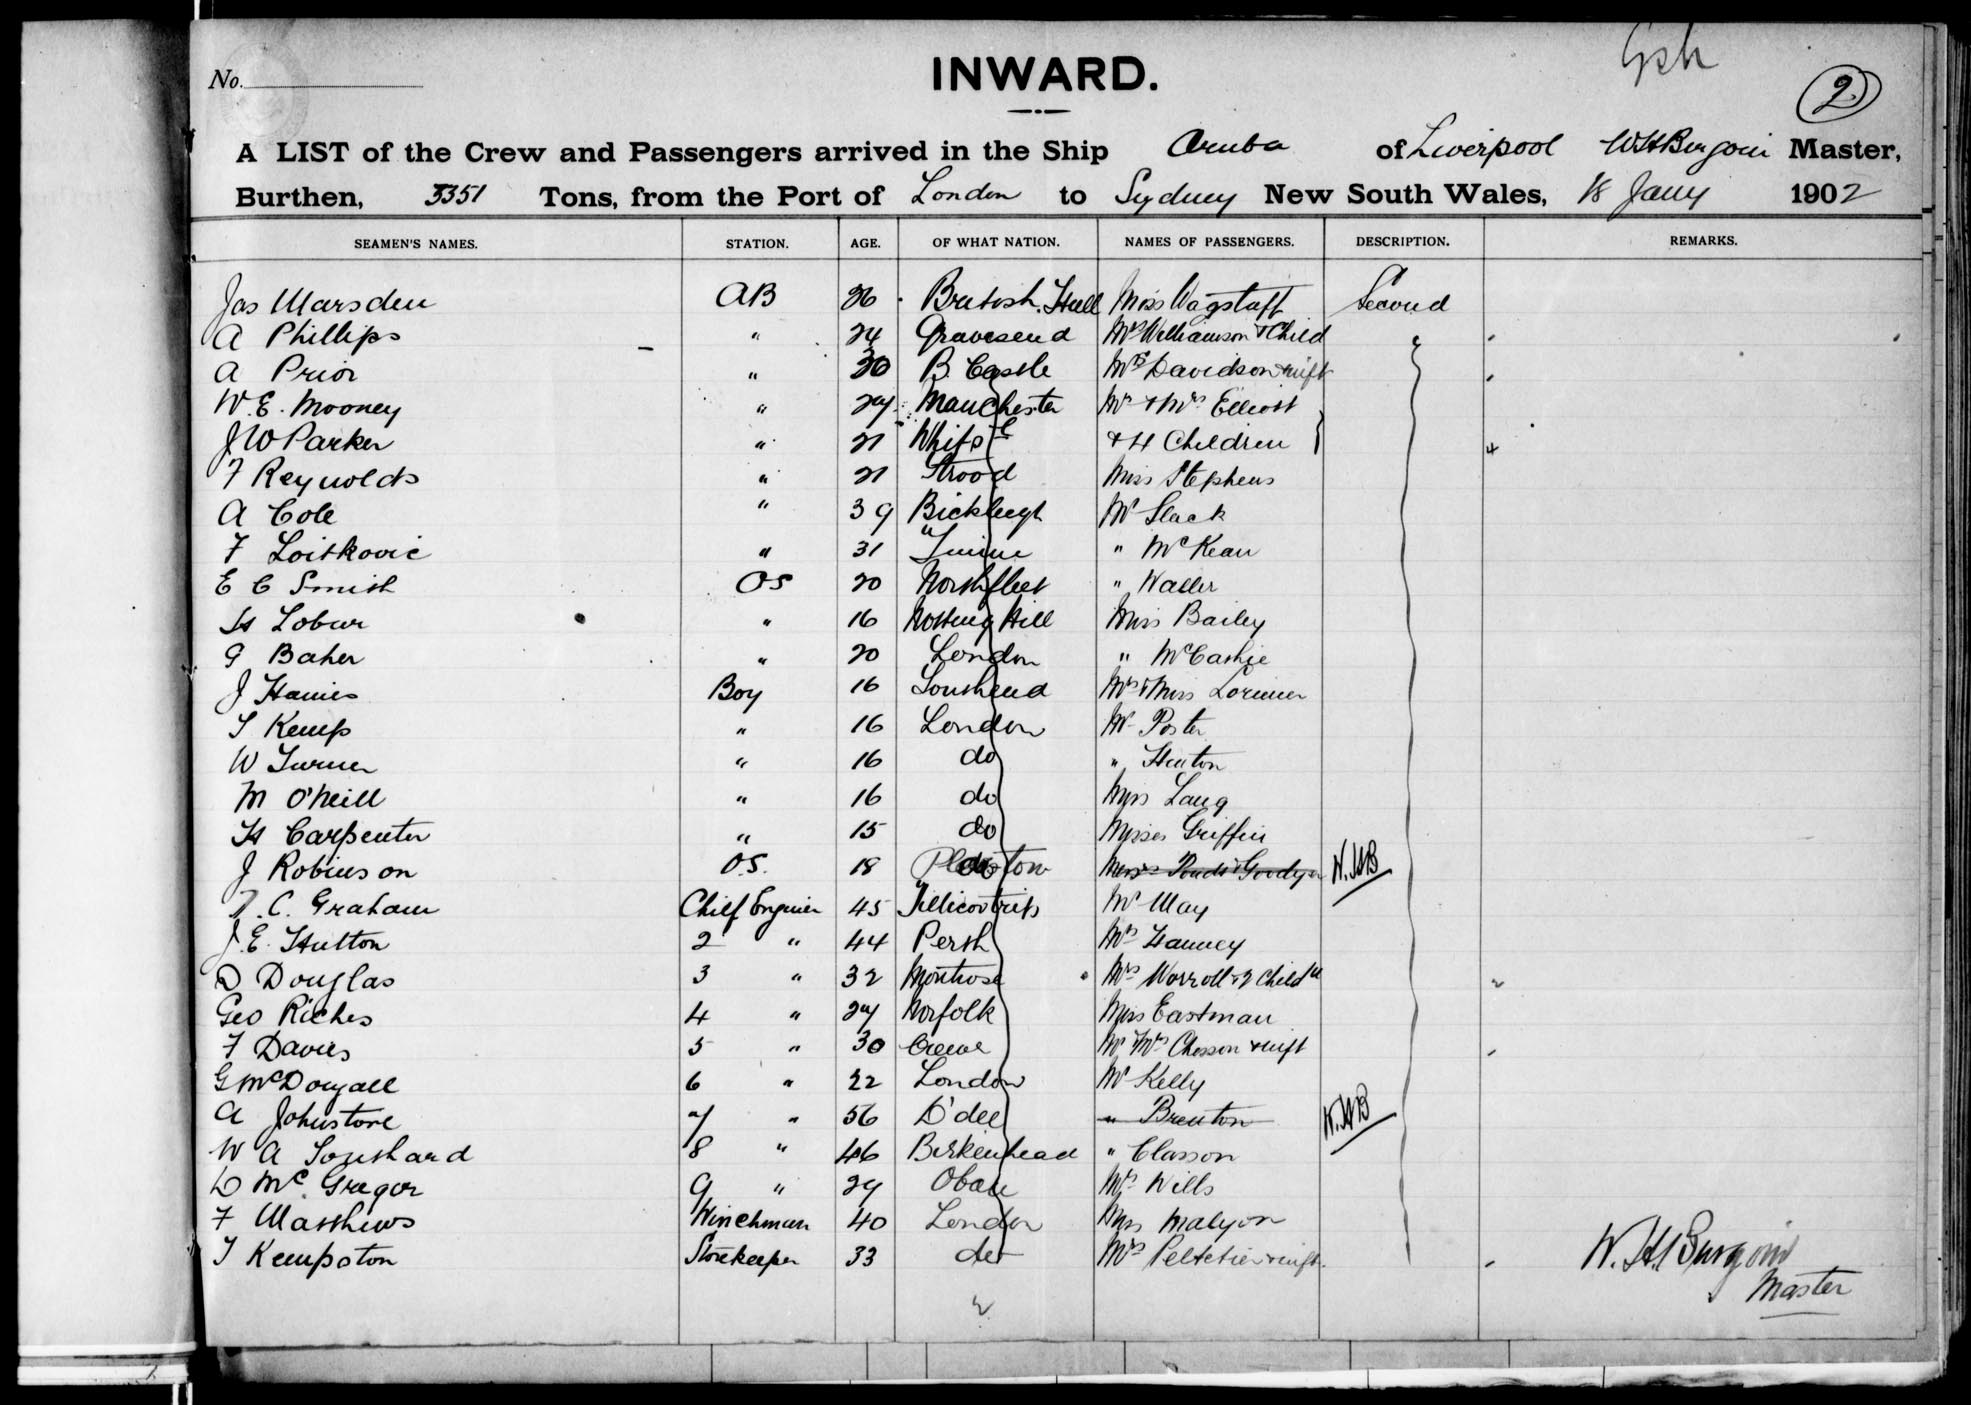 No.
INWARD.
2
A LIST of the Crew and Passengers arrived in the Ship Oruba of Liverpool W H Burgoin Master,
Burthen, 3351 Tons, from the Port of London to Sydney New South Wales, 18 Jany 1902
SEAMEN'S NAMES. STATION. AGE. OF WHAT NATION. NAMES OF PASSENGERS. DESCRIPTION. REMARKS.
Jas Marsden AB 26 British. Hull Miss Wagstaff Second
A Phillips " 24 Gravesend Mrs Williamson & Child
A Prior " 30 B. Castle Mrs Davidson & inft
W. E. Mooney " 27 Manchester Mr & Mrs Elliott
J W Parker " 21 & 4 Children 4
F Reynolds " 21 Strood Miss Stephens
A Cole " 39 Bickleigh Mr Slack
F " 31 " McKean
E C Smith OS 20 Northfleet " Waller
" 16 Notting Hill Miss Bailey
G Baker " 20 London "
J Boy 16 Southend Mrs & Miss Lorimer
T Kemp " 16 London Mr
W Turner " 16 do "
M O'Neill " 16 do Miss Lang
H Carpenter " 15 do Misses Griffin
J Robinson O.S. 18 W.HB
C. Graham Chief Engineer 45 Mr May
J. E. Hutton 2 " 44 Perth Mrs
D Douglas 3 " 32 Montrose Mrs Worroll & 2 Child 2
Geo Riches 4 " 27 Norfolk Miss Eastman
F Davies 5 " 30 Crewe Mr & Mrs & inft
G McDougall 6 " 22 London Mr Kelly
A Johnstone 7 " 56 D'dee " Brenton W.HB
W A Southard 8 " 46 Birkenhead "
D McGregor 9 " 29 Oban Mrs Wills
F Matthews Winchman 40 London Miss Malyon
T Kempston Storekeeper 33 do Mrs Peltetier & inft.
W. H. Burgoin
Master